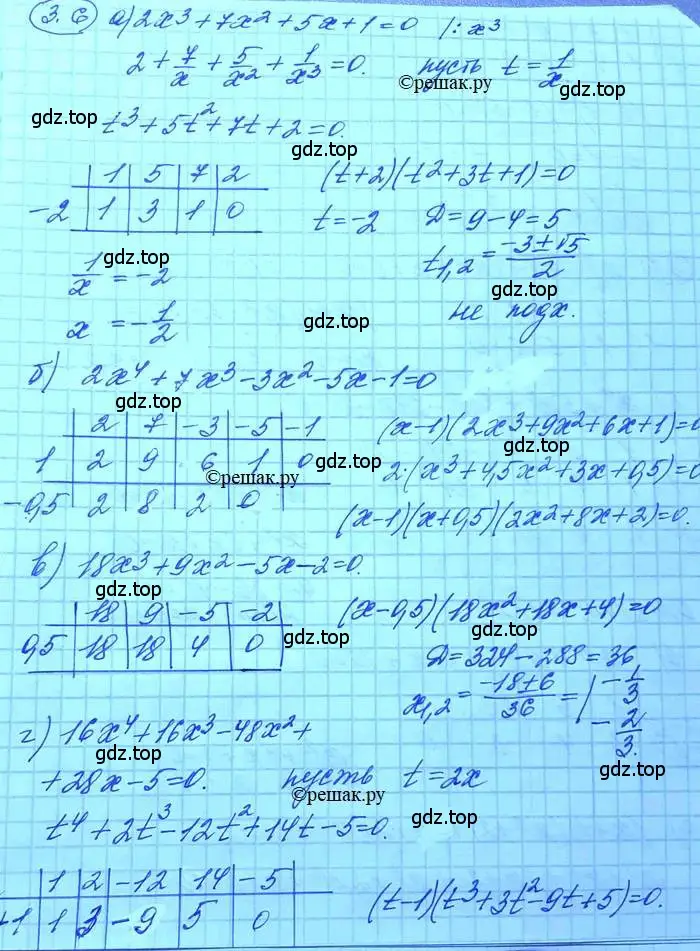 3.6 а) 2x³ + 7x² + 5x + 1 = 0 /: x³
2 + 7/x + 5/x² + 1/x³ = 0. пусть t = 1/x
©решак.ру
gdz.top
gdz.top
t³ + 5t² + 7t + 2 = 0.
gdz.top
| 1 | 5 | 7 | 2
-2 | 1 | 3 | 1 | 0
(t+2)(t²+3t+1)=0
t = -2 D = 9 - 4 = 5
t₁,₂ = (-3±√5)/2
gdz.top
gdz.top
1/x = -2
не подх.
gdz.top
x = -1/2
б) 2x⁴ + 7x³ - 3x² - 5x - 1 = 0
gdz.top
| 2 | 7 | -3 | -5 | -1
1 | 2 | 9 | 6 | 1 | 0
-0,5 | 2 | 8 | 2 | 0
(x-1)(2x³+9x²+6x+1)=0
gdz.top
gdz.top
2·(x³+4,5x²+3x+0,5)=0
©решак.ру
(x-1)(x+0,5)(2x²+8x+2)=0.
в) 18x³ + 9x² - 5x - 2 = 0.
gdz.top
gdz.top
| 18 | 9 | -5 | -2
0,5 | 18 | 18 | 4 | 0
(x-0,5)(18x²+18x+4)=0
gdz.top
D = 324 - 288 = 36
x₁,₂ = (-18±6)/36 = | -1/3
-2/3.
г) 16x⁴ + 16x³ - 48x² +
+ 28x - 5 = 0. пусть t = 2x
gdz.top
©решак.ру
t⁴ + 2t³ - 12t² + 14t - 5 = 0.
gdz.top
gdz.top
| 1 | 2 | -12 | 14 | -5
+1 | 1 | 3 | -9 | 5 | 0
(t-1)(t³+3t²-9t+5)=0.